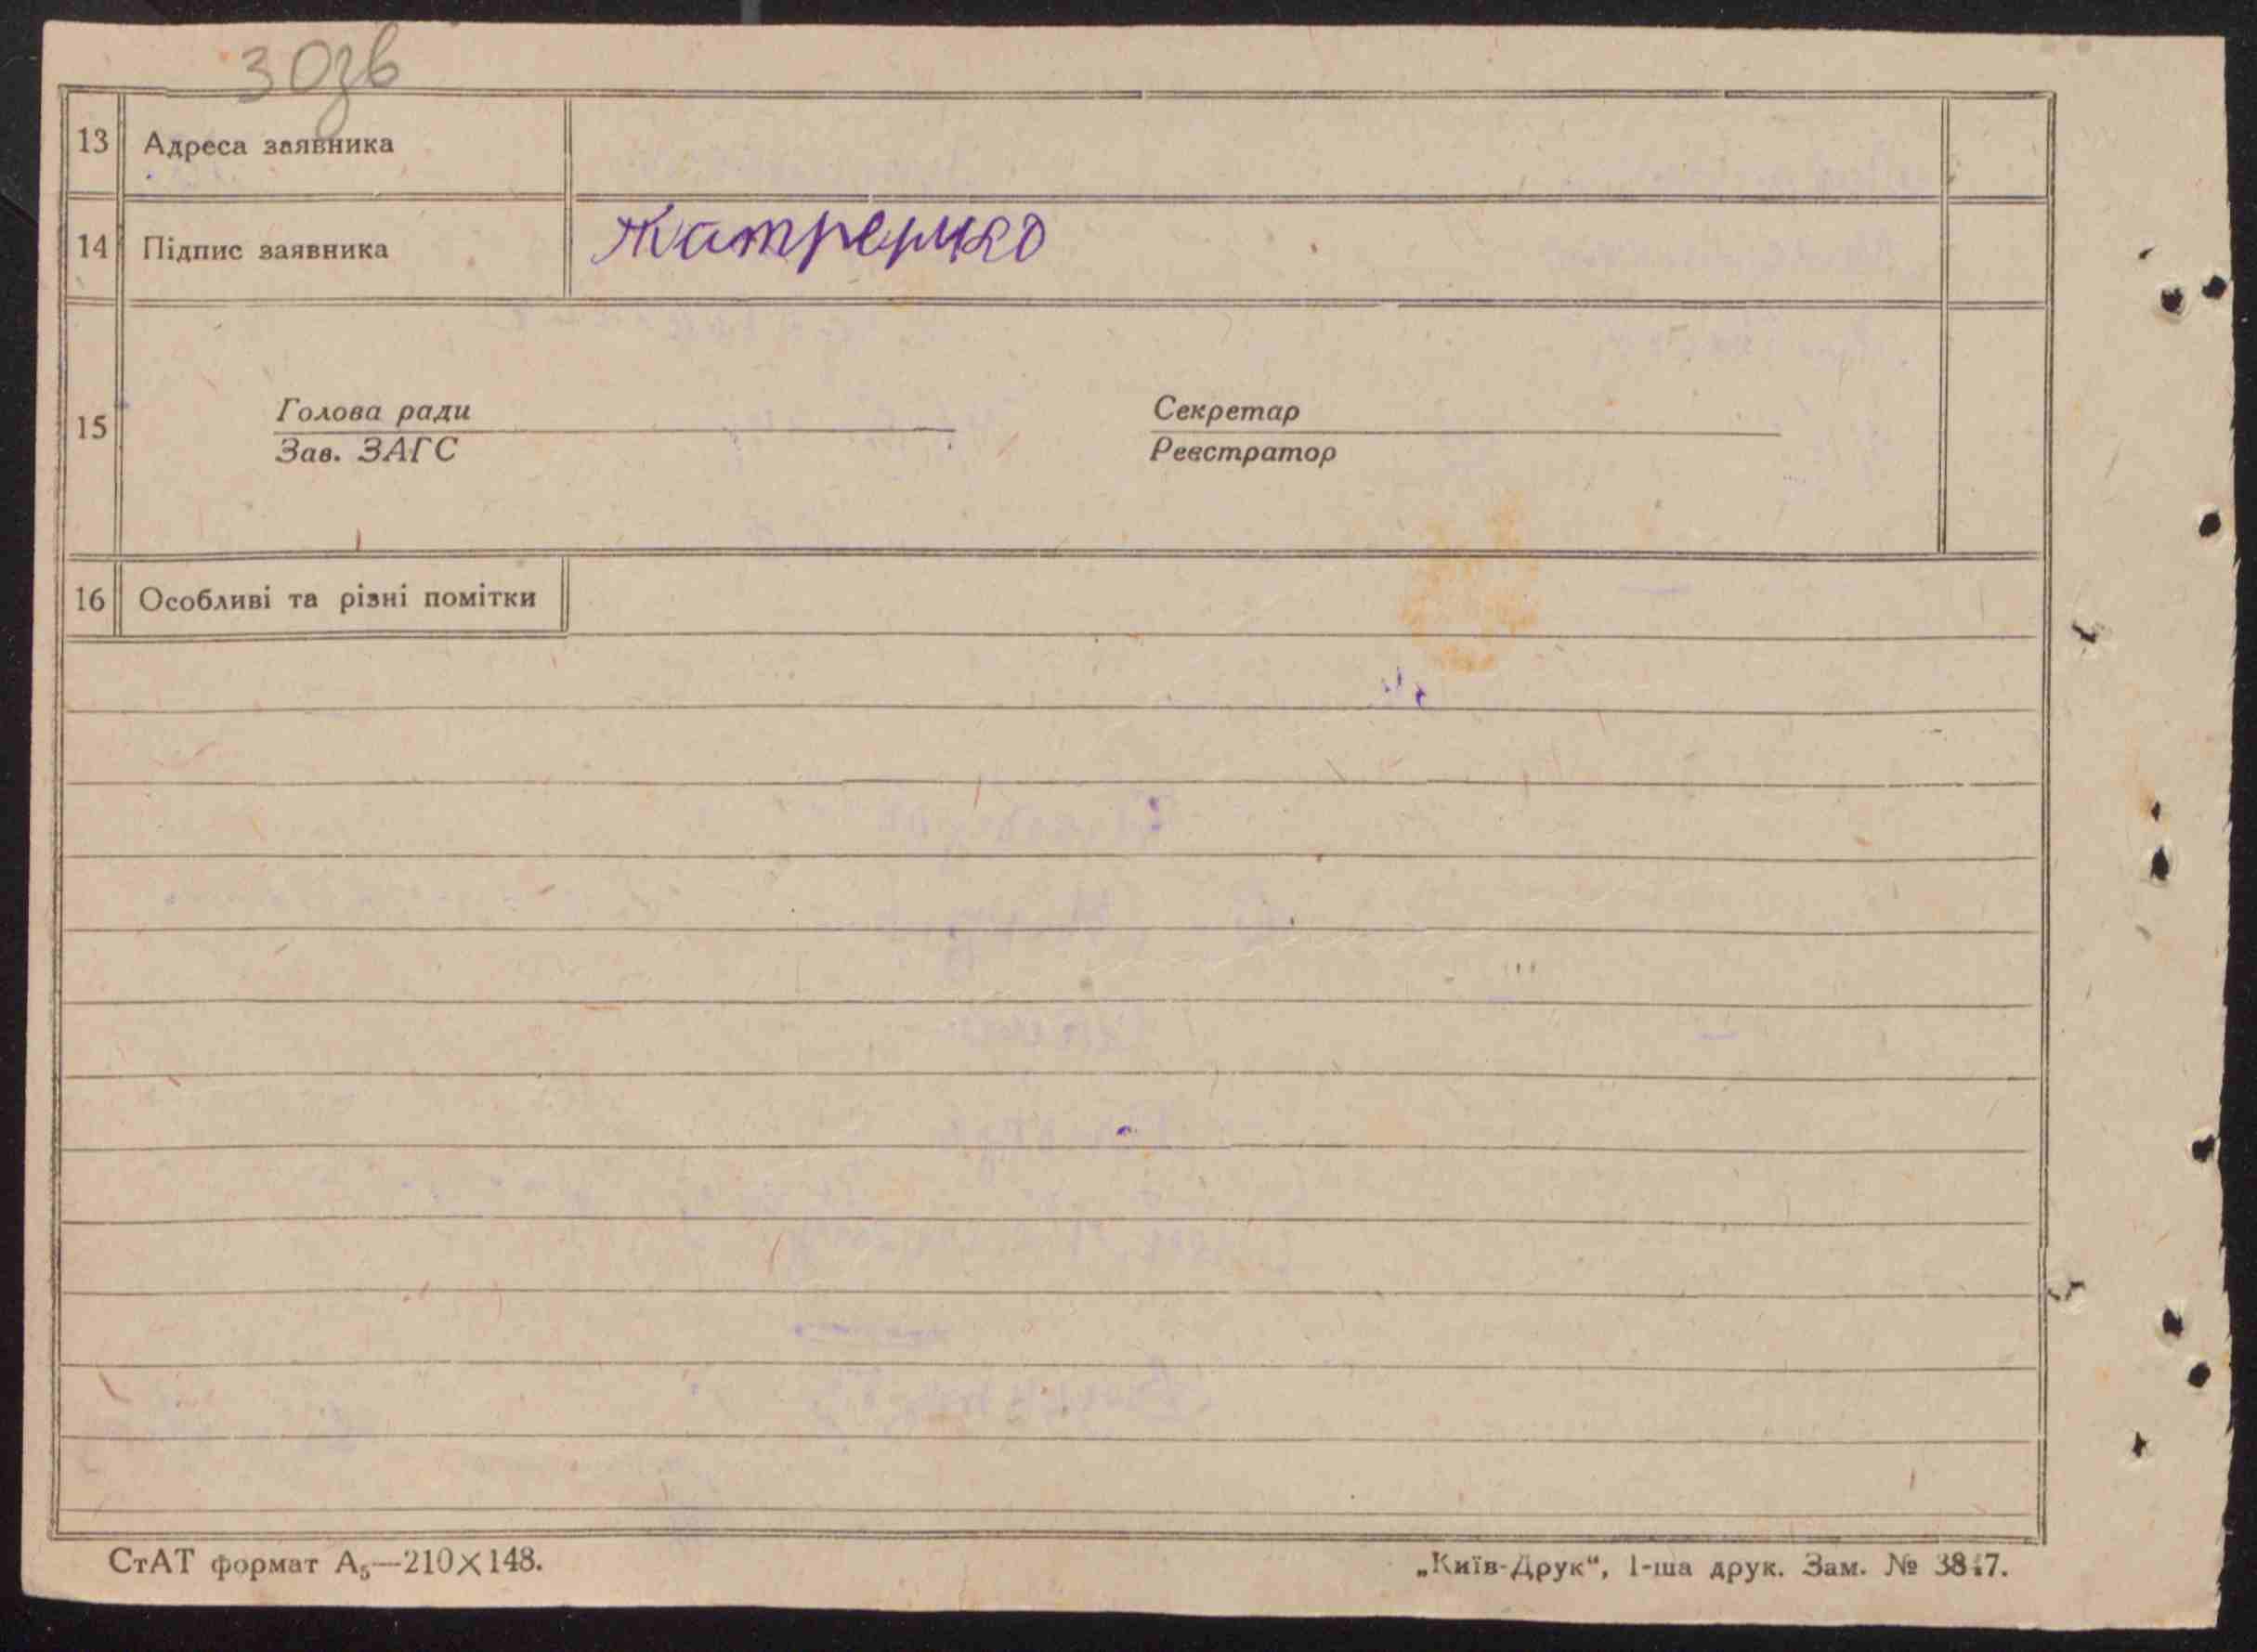 30зв
13 Адреса заявника
14 Підпис заявника
15 Голова ради Секретар
Зав. ЗАГС Реєстратор
16 Особливі та різні помітки
СтАТ формат А5—210×148. „Київ-Друк“, 1-ша друк. Зам. №